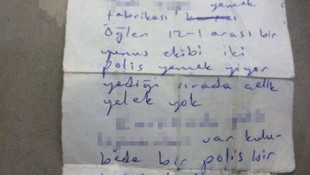 yemek
fabrikası
Öğlen 12-1 arası bir
yunus ekibi iki
polis yemek yiyor
yediği sırada çelik
yelek yok
var kulu-
bede bir polis bir